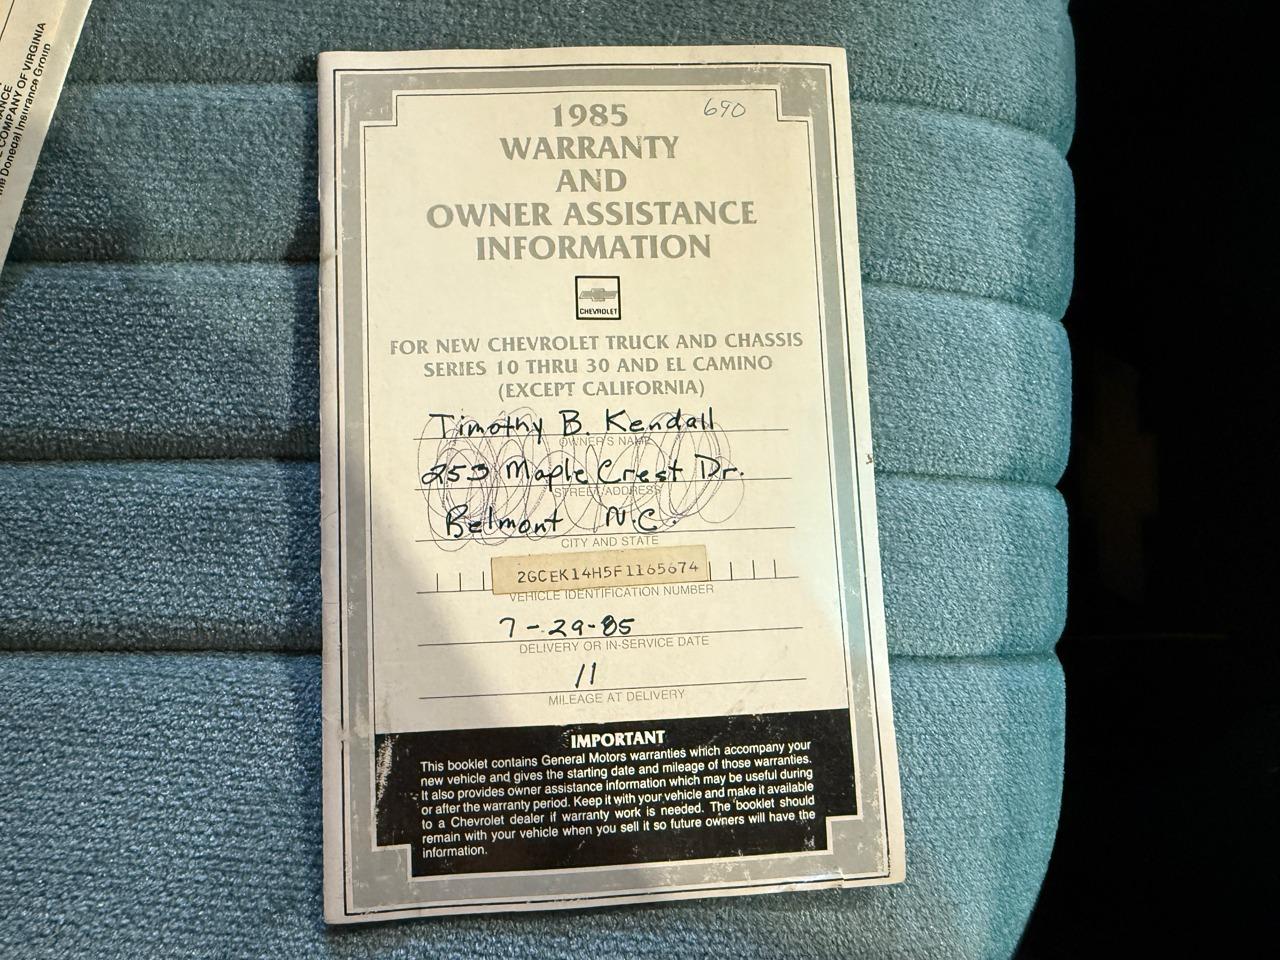 NCE
COMPANY OF VIRGINIA
Donegal Insurance Group
690
1985
WARRANTY
AND
OWNER ASSISTANCE
INFORMATION
CHEVROLET
FOR NEW CHEVROLET TRUCK AND CHASSIS
SERIES 10 THRU 30 AND EL CAMINO
(EXCEPT CALIFORNIA)
Timothy B. Kendall
OWNER'S NAME
253 Maple Crest Dr.
STREET ADDRESS
Belmont N.C.
CITY AND STATE
2GCEK14H5F1165674
VEHICLE IDENTIFICATION NUMBER
7-29-85
DELIVERY OR IN-SERVICE DATE
11
MILEAGE AT DELIVERY
IMPORTANT
This booklet contains General Motors warranties which accompany your
new vehicle and gives the starting date and mileage of those warranties.
It also provides owner assistance information which may be useful during
or after the warranty period. Keep it with your vehicle and make it available
to a Chevrolet dealer if warranty work is needed. The booklet should
remain with your vehicle when you sell it so future owners will have the
information.